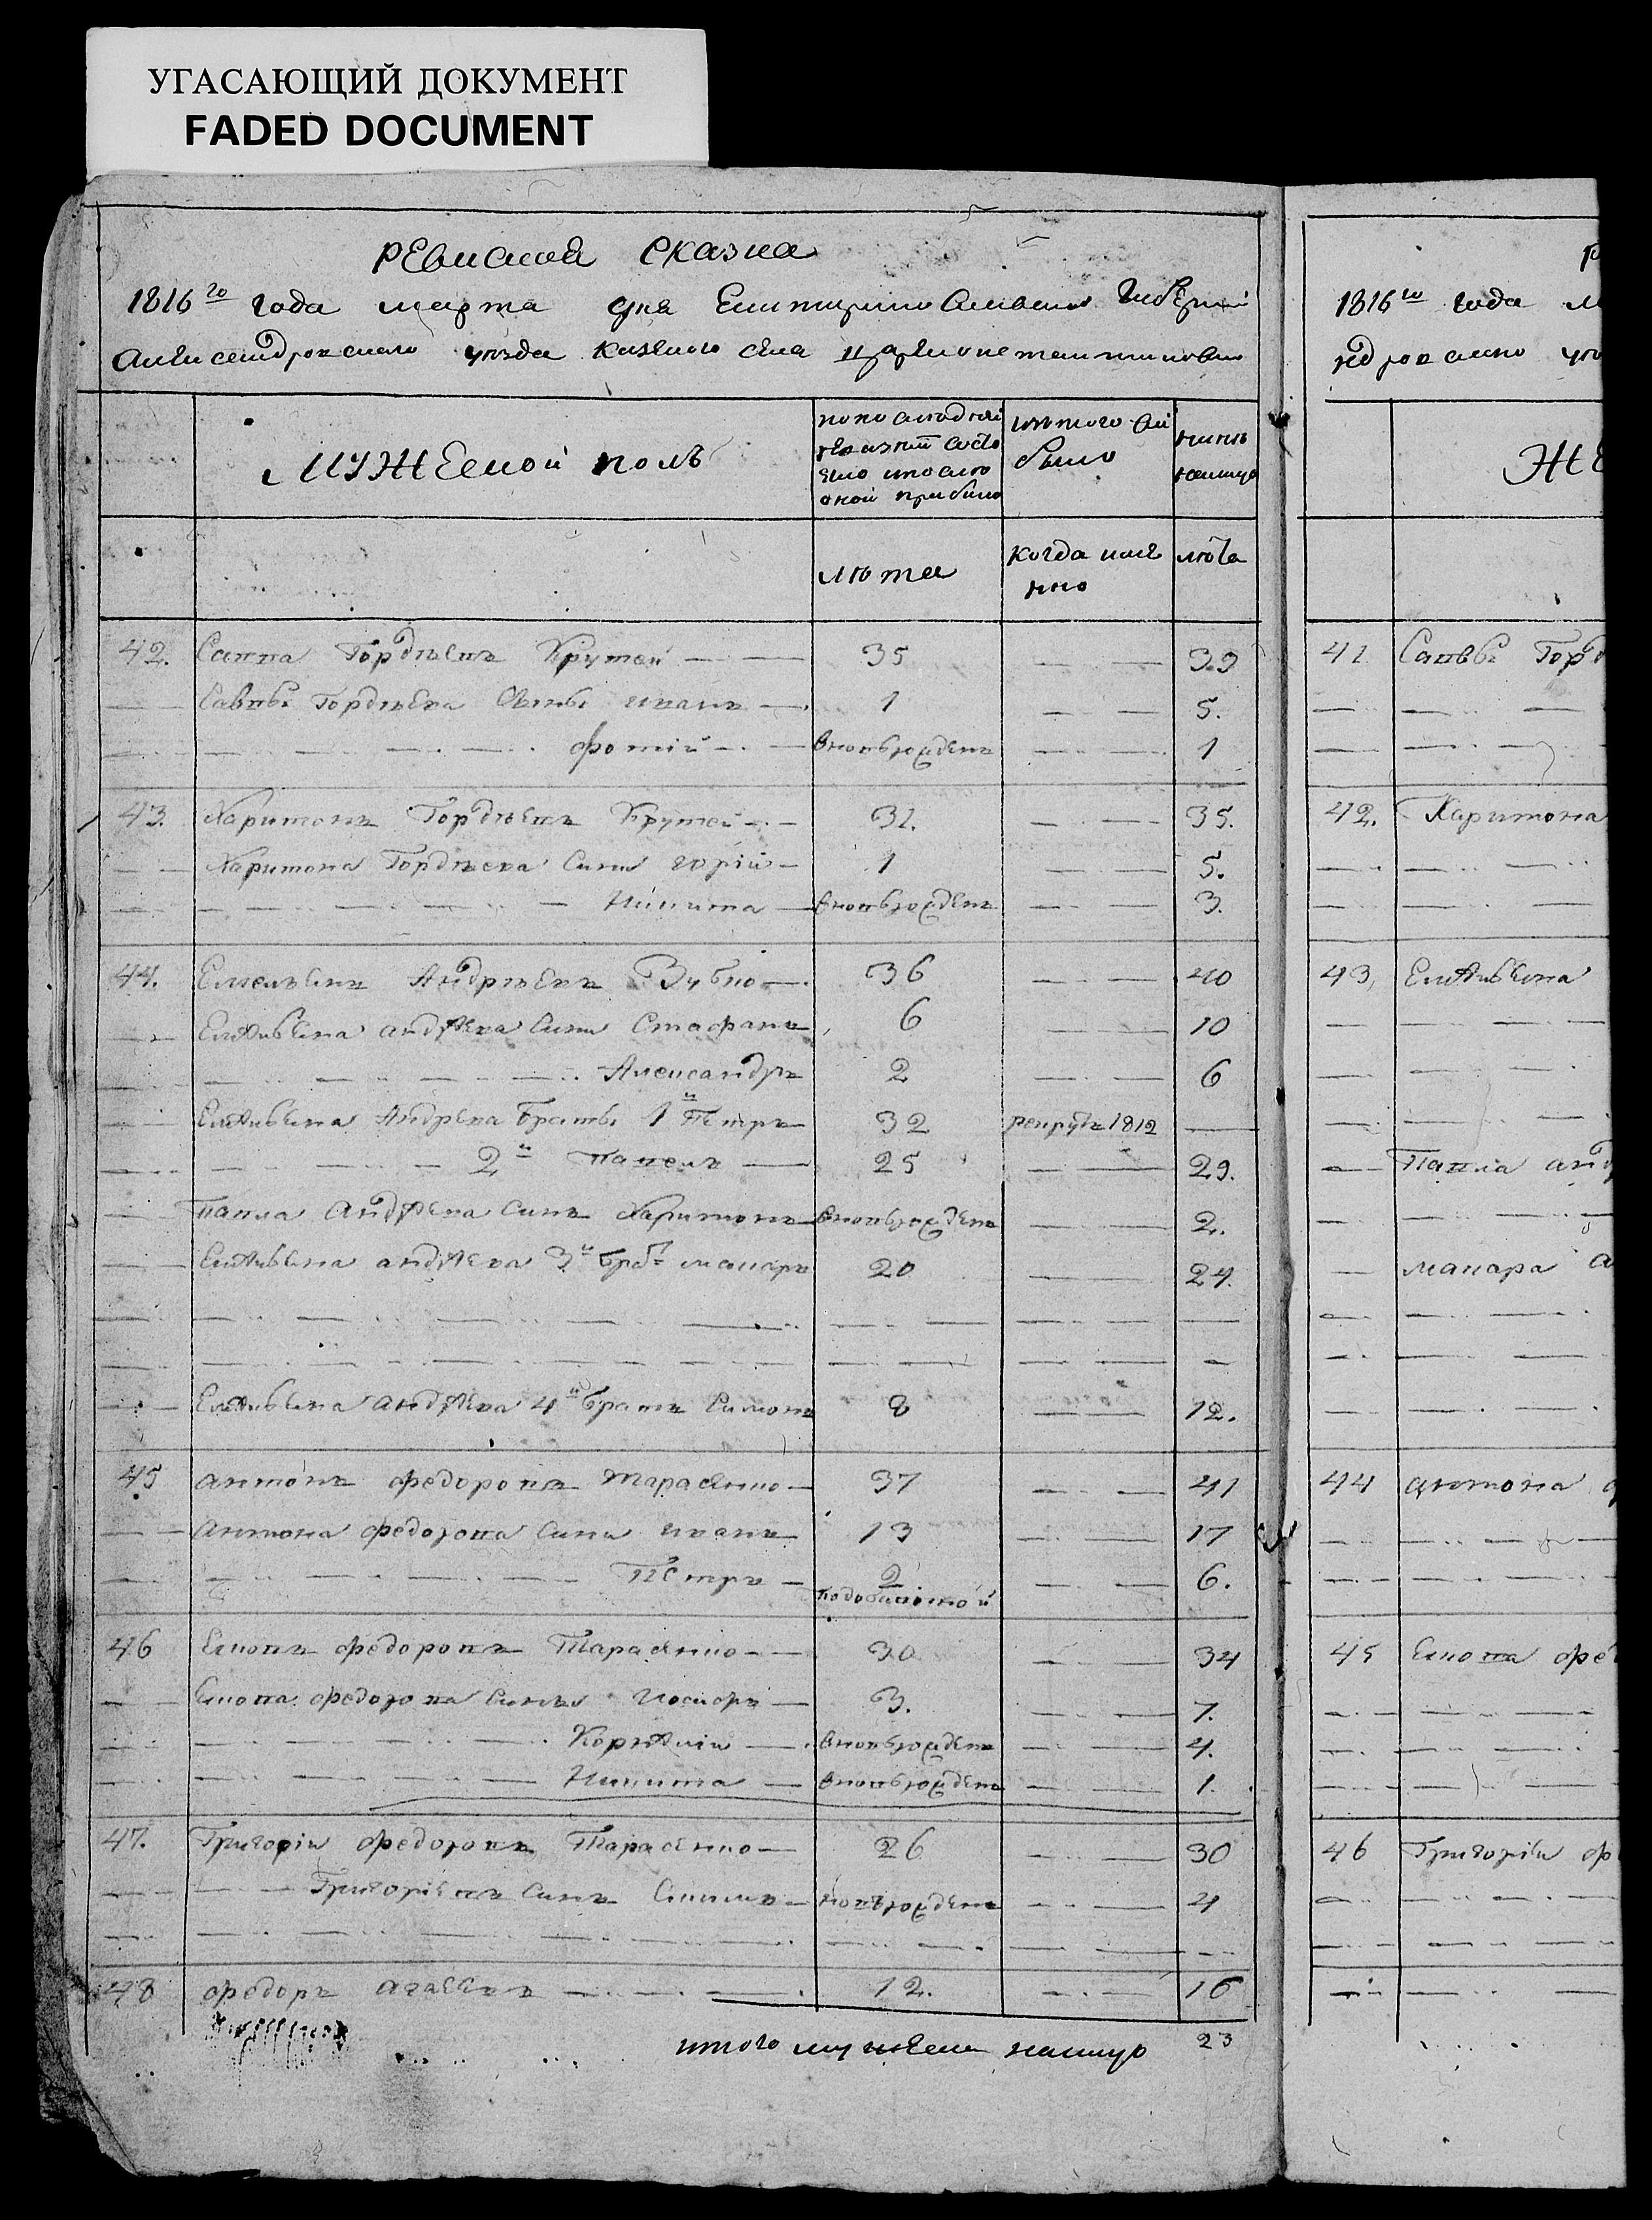 УГАСАЮЩИЙ ДОКУМЕНТ
FADED DOCUMENT
Ревиская сказка
1816го года марта дня Екатеринославской Губернiи
Александровскаго уѣзда казенаго села Цареконстантиновки
Мужеской полъ
по последней ревизiи состояло и после оной прибыло
изъ того выбыло
нынѣ на лицо
лѣта
когда имянно
лѣта
42. Савва Гордѣевъ Крутей 35 39
Саввы Гордѣева сыны иванъ 1 5.
фотiй вновьрожденъ 1
43. Харитонъ Гордѣевъ Крутей 31. 35.
Харитона Гордѣева сыны юрiй 1 5.
Никита вновьрожденъ 3.
44. Емельянъ Андрѣевъ Зубко 36 40
Емельяна андрѣева сыны Стефанъ 6 10
Александръ 2 6
Емельяна Андрѣева братья 1й Петръ 32 рекрутъ 1812
2й павелъ 25 29.
павла андрѣева сынъ Харитонъ вновьрожденъ 2.
Емельяна андрѣева 3й братъ макаръ 20 24.
Емельяна андрѣева 4й братъ Симонъ 8 12.
45 антонъ федоровъ Тарасенко 37 41
антона федорова сыны иванъ 13 17
Петръ 2 6.
46 федоровъ Тарасенко 30 34
федорова сыны 3. 7.
Корнѣлiй вновьрожденъ 4.
Никита вновьрожденъ 1.
47. Григорiй федоровъ Тарасенко 26 30
Григорiевъ сынъ новорожденъ 4
48 федоръ 12. 16
итого мужеска налицо 23
1816го года м
ЖЕ
41 Саввы Горд
42. Харитона
43, Емельяна
Павла анд
макара а
44 антона ф
45 фе
46 Григорiя ф